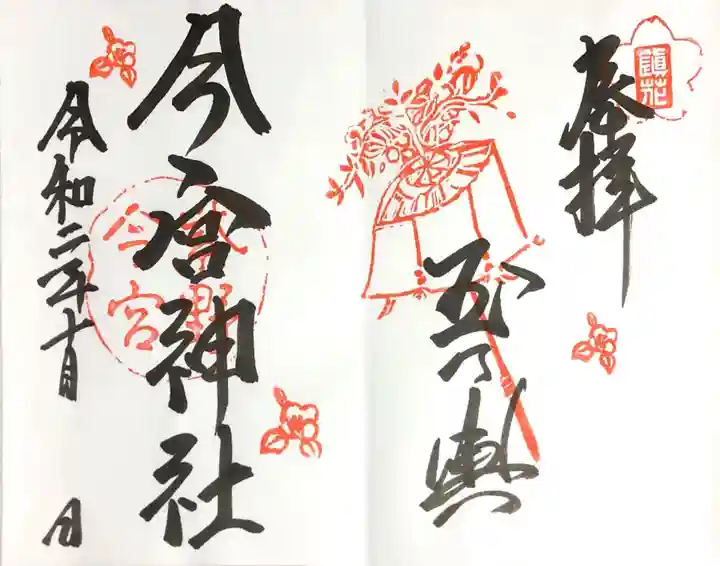 奉拝
鎭花
玉乃輿
今宮神社
紫野
今宮
令和二年十月 日